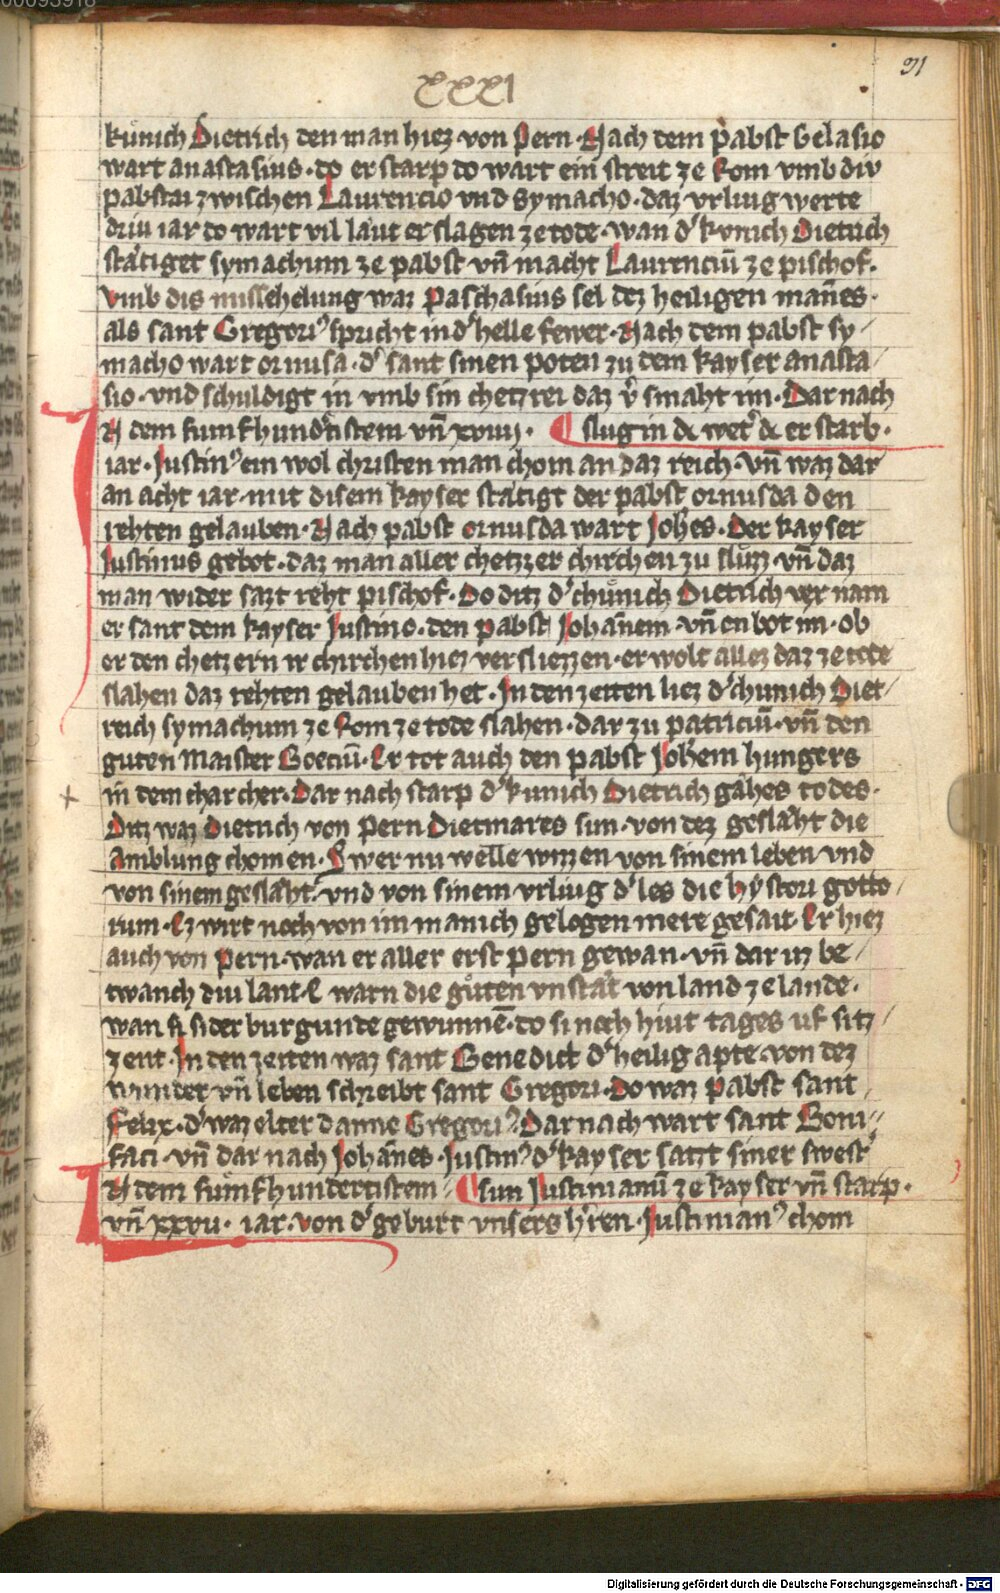 00093918
31
XXXI
kunich Dietrich den man hiez von Pern · Nach dem pabst Gelasio
wart anastasius · do er starp do wart ein streit ze Rom vmb div
pabstai zwischen Laurencio vnd Symacho · daz vrliug werte
driu iar do wart vil laut erslagen ze tode · wan dˀ kvnich Dietrich
stætiget symachum ze pabst vn̄ macht Laurenciū ze pischof ·
vmb dis missehelung waz Paschasius sel dez heiligen mānes ·
als sant Gregoriꝰ spricht in dˀ helle fewer · Nach dem pabst sy⸗
macho wart ormisa · dˀ sant sinen poten zu dem kayser anasta⸗
sio · vnd schuldigt in vmb sin chetzrei daz vˀsmaht im · Dar nach
slug in dc wetˀ dc er starb ·
IN dem funfhundˀtistem vn̄ xxiiij ·
iar · Iustinꝰ ein wol christen man chom an daz reich · vn̄ waz dar
an acht iar · mit disem kayser stætigt der pabst ormisda den
rehten gelauben · Nach pabst ormisda wart Joh̄es · Der kayser
Iustinus gebot · daz man aller chetzzer chirchen zu sluzz · vn̄ daz
man wider sazt reht pischof · Do ditz dˀ chunich Dietrich ver nam
er sant dem kayser Iustino · den pabst Johānem vn̄ enbot im · ob
er den chetzern ir chirchen hiez versliezzen · er wolt allez daz ze tode
slahen daz rehten gelauben het · In den zeiten liez dˀ chunich Diet⸗
reich symachum ze Rom ze tode slahen · dar zu patriciū · vn̄ den
guten Maister Boeciū · Er tot auch den pabst Joh̄em hungers
in dem charcher · Dar nach starp dˀ kunich Dietrich gåhes todes ·
Ditz waz Dietrich von Pern Dietmares sun · von dez geslåht die
Amblung chomen · Swer nu welle wizzen von sinem leben vnd
von sinem geslåht · vnd von sinem vrliug dˀ les die hystori gotto⸗
rum · Ez wirt noch von im manich gelogen mere gesait · Er hiez
auch von Pern · wan er aller erst Pern gewan · vn̄ dar in be⸗
twanch diu lant · E warn die guten vnståt von land ze lande ·
wan si sider burgunde gewunnē · do si noch hiut tages uf sitz⸗
zent · In den zeiten waz sant Benedict dˀ heilig apte · von dez
wunder vn̄ leben schreibt sant Gregori · Do waz pabst sant
Felix · dˀ waz elter danne Gregoriꝰ · Dar nach wart sant Boni⸗
faci · vn̄ dar nach Johānes · Iustinꝰ dˀ kayser satzt siner swestˀ
sun Iustinianū ze kayser vn̄ starp ·
IN dem funfhundertistem
vn̄ xxvii · iar · von dˀ geburt vnsers hˀren · Iustinianꝰ chom
Digitalisierung gefördert durch die Deutsche Forschungsgemeinschaft - DFG